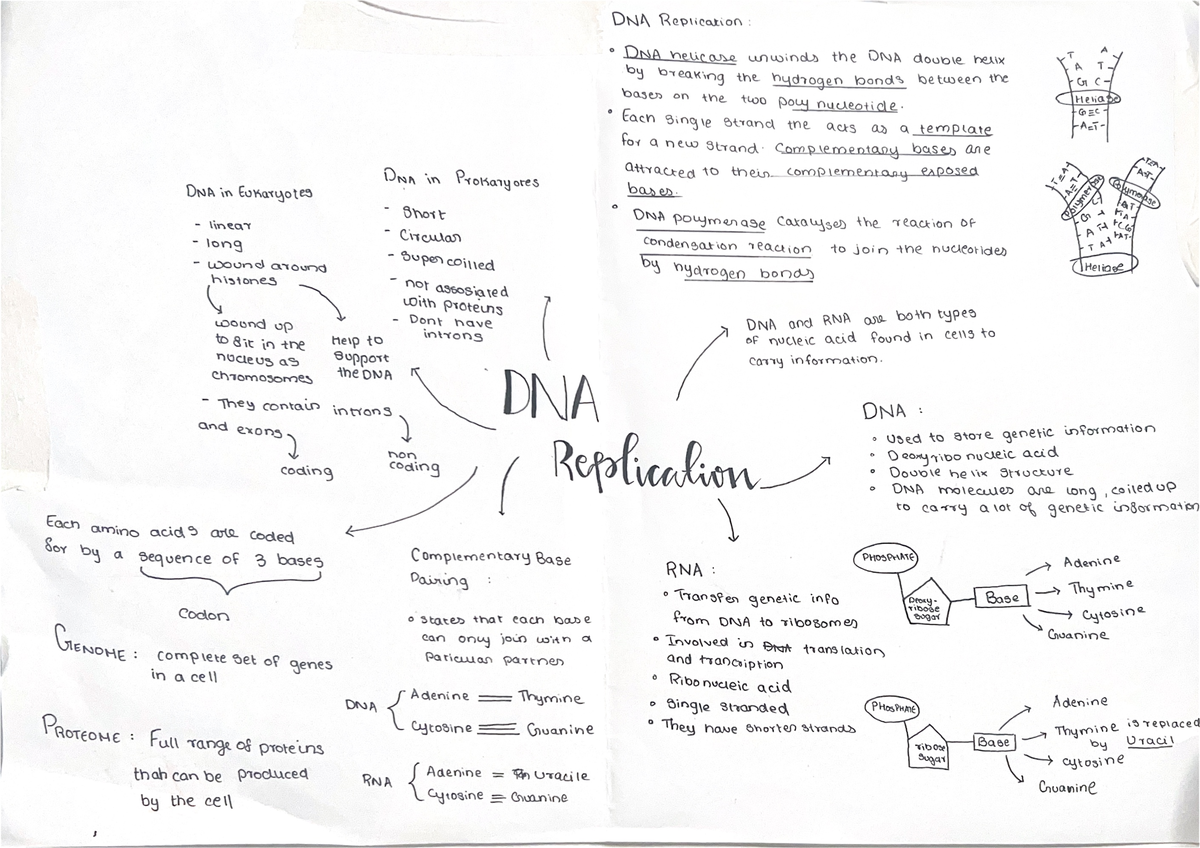 DNA Replication :
• DNA helicase unwinds the DNA double helix
by breaking the hydrogen bonds between the
bases on the two poly nucleotide.
• Each single strand the acts as a template
for a new strand. Complementary bases are
attracted to their complementary exposed
bases.
• DNA polymerase catalyses the reaction of
condensation reaction to join the nucleotides
by hydrogen bonds
T A
A T-
-G C-
Heliase
-G≡C-
-A=T-
Polymerase
Polymerase
Heliase
DNA in Eukaryotes
- linear
- long
- wound around
histones
wound up
to fit in the
nucleus as
chromosomes
Help to
support
the DNA
- They contain introns
and exons
coding
non
coding
DNA in Prokaryotes
- Short
- Circular
- Super coilled
- not assosiated
with proteins
- Dont have
introns
DNA
Replication
DNA and RNA are both types
of nucleic acid found in cells to
carry information.
DNA :
• Used to store genetic information
• Deoxyribo nucleic acid
• Double helix structure
• DNA molecules are long, coiled up
to carry a lot of genetic information
PHOSPHATE
Deoxy-
ribose
sugar
Base
Adenine
Thymine
Cytosine
Guanine
Each amino acids are coded
for by a sequence of 3 bases
Codon
GENOME : complete set of genes
in a cell
PROTEOME : Full range of proteins
thah can be produced
by the cell
Complementary Base
Pairing :
• states that each base
can only join with a
paticular partner
DNA { Adenine = Thymine
Cytosine ≡ Guanine
RNA { Adenine = Uracile
Cytosine ≡ Guanine
RNA :
• Transfer genetic info
from DNA to ribosomes
• Involved in translation
and trancription
• Ribonucleic acid
• Single stranded
• They have shorter strands
PHOSPHATE
ribose
sugar
Base
Adenine
Thymine is replaced
by Uracil
cytosine
Guanine